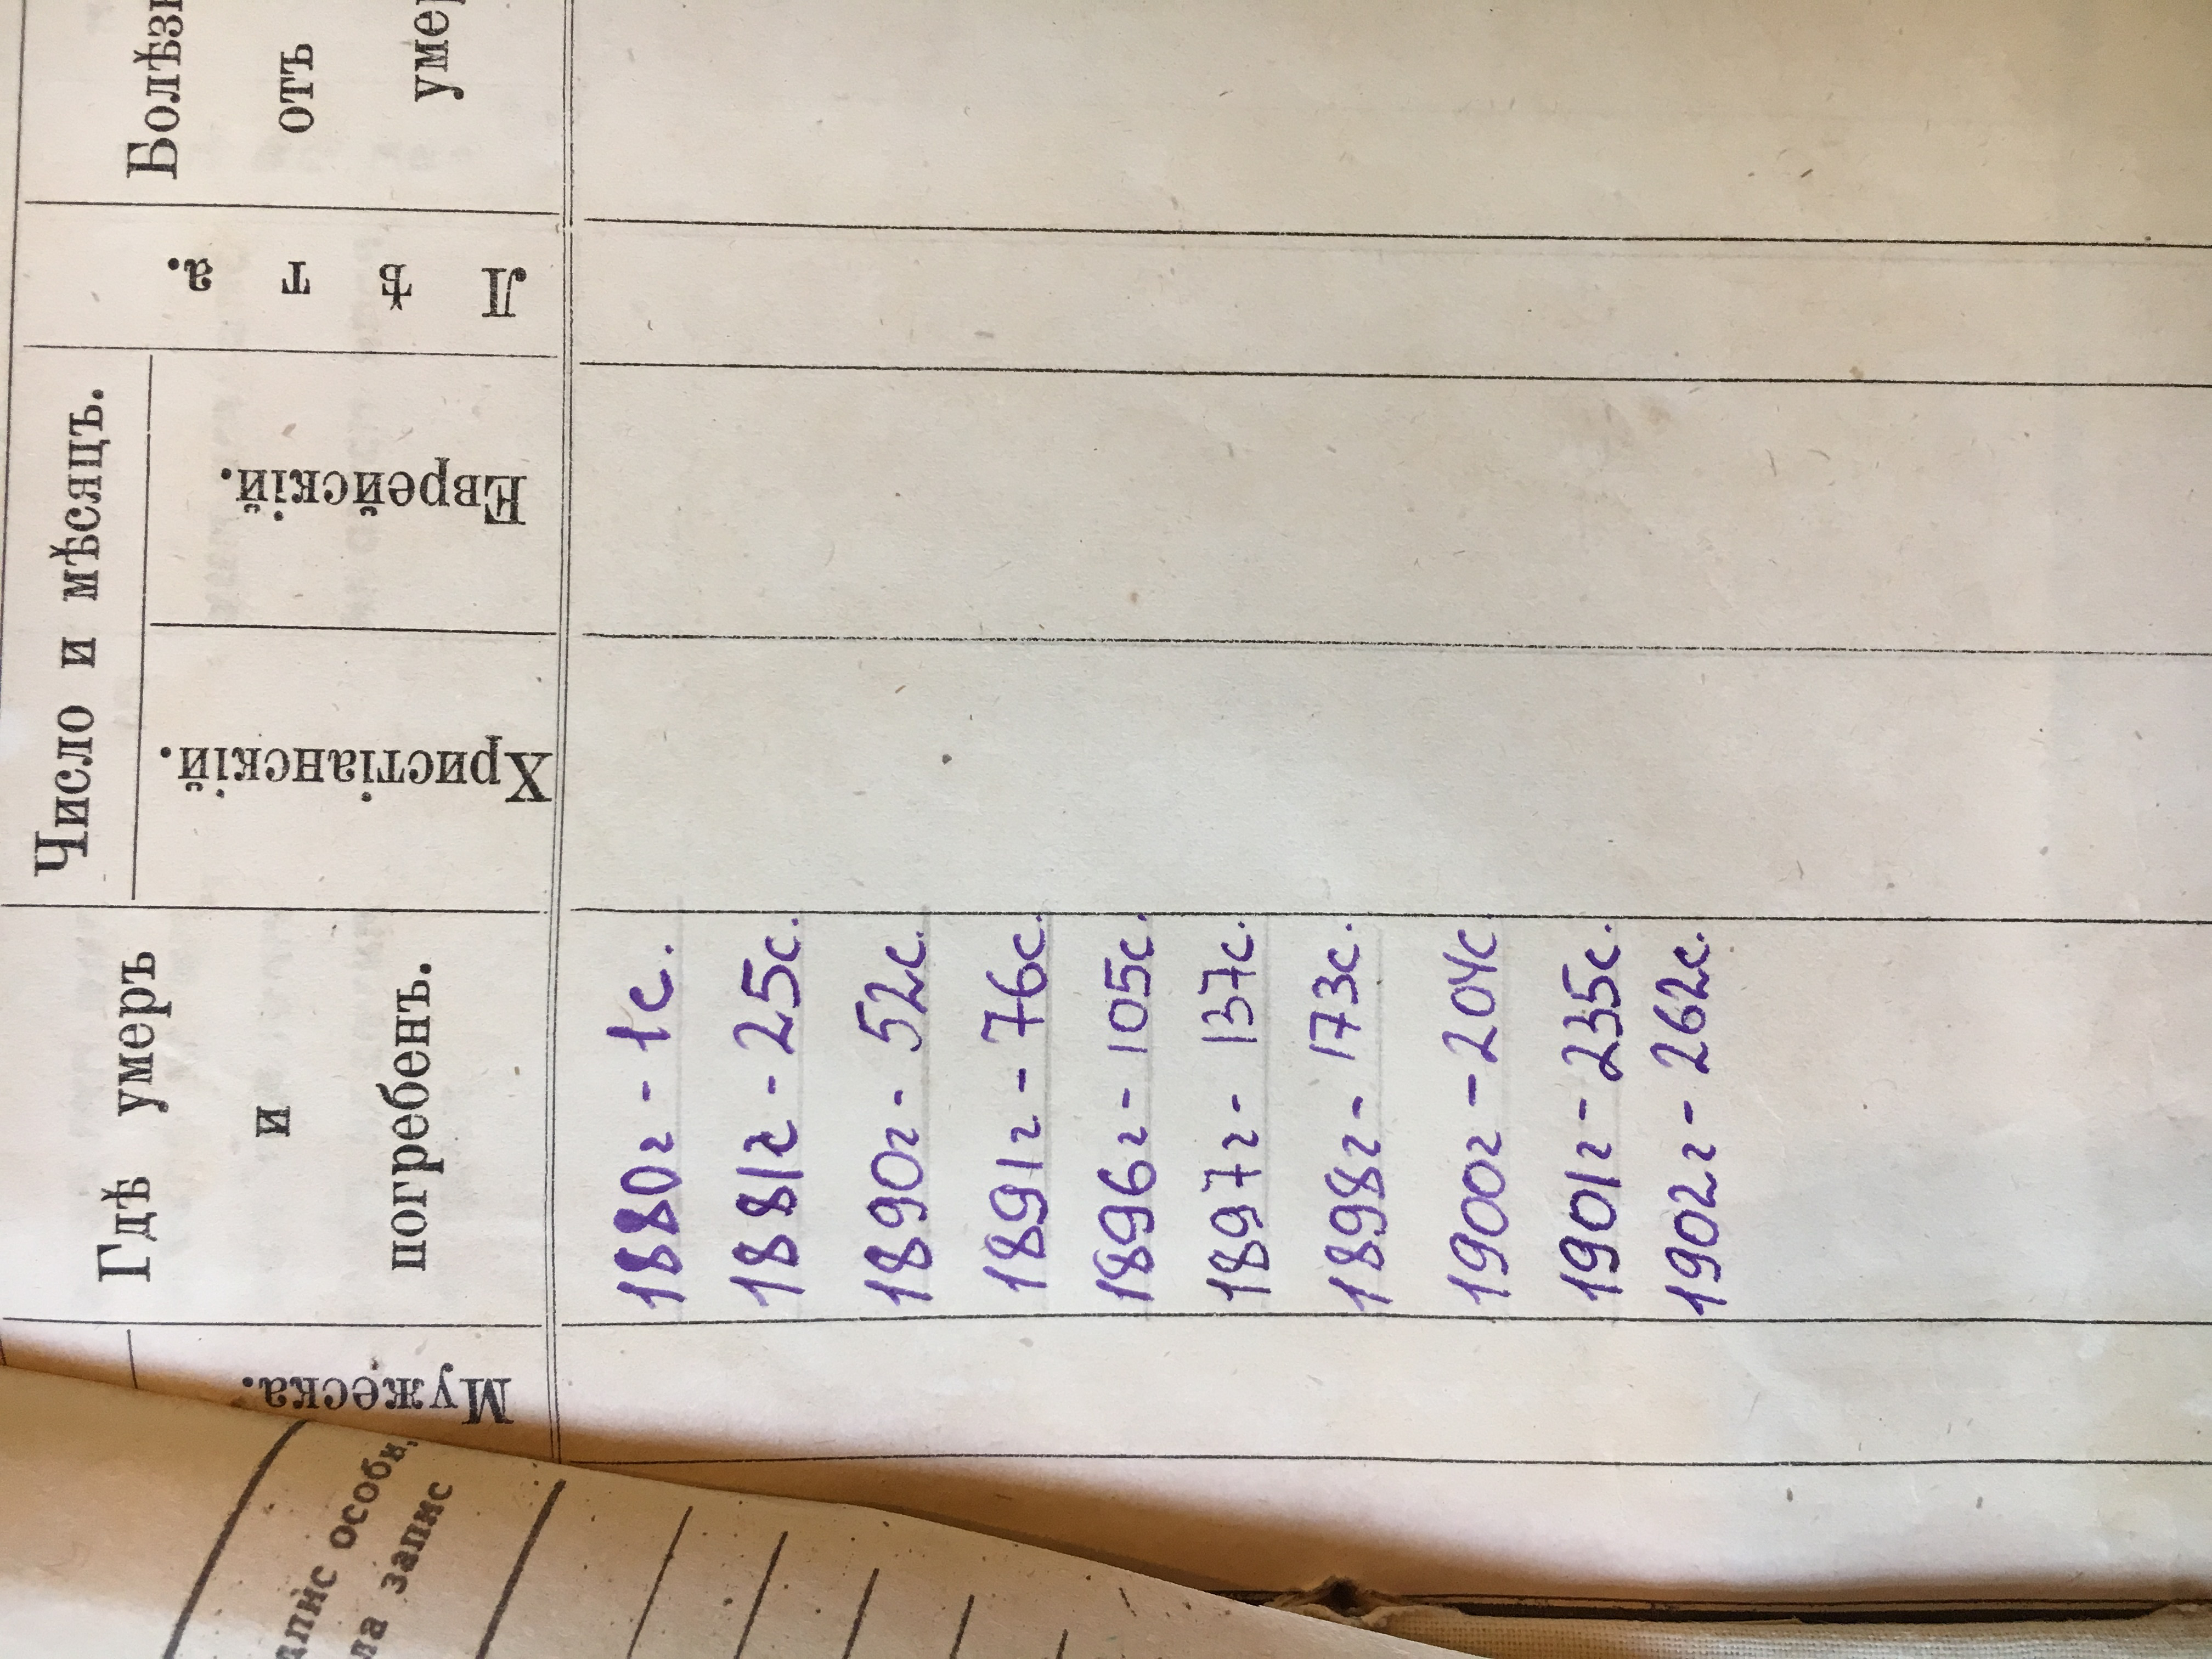 Мужеска.
Гдѣ умеръ
и
погребенъ.
Число и мѣсяцъ.
Христіанскій.
Еврейскій.
Лѣта.
отъ
1880г - 1с.
1881г - 25с.
1890г - 52с.
1891г - 76с.
1896г - 105с.
1897г - 137с.
1898г - 173с.
1900г - 204с
1901г - 235с.
1902г - 262с.
запис